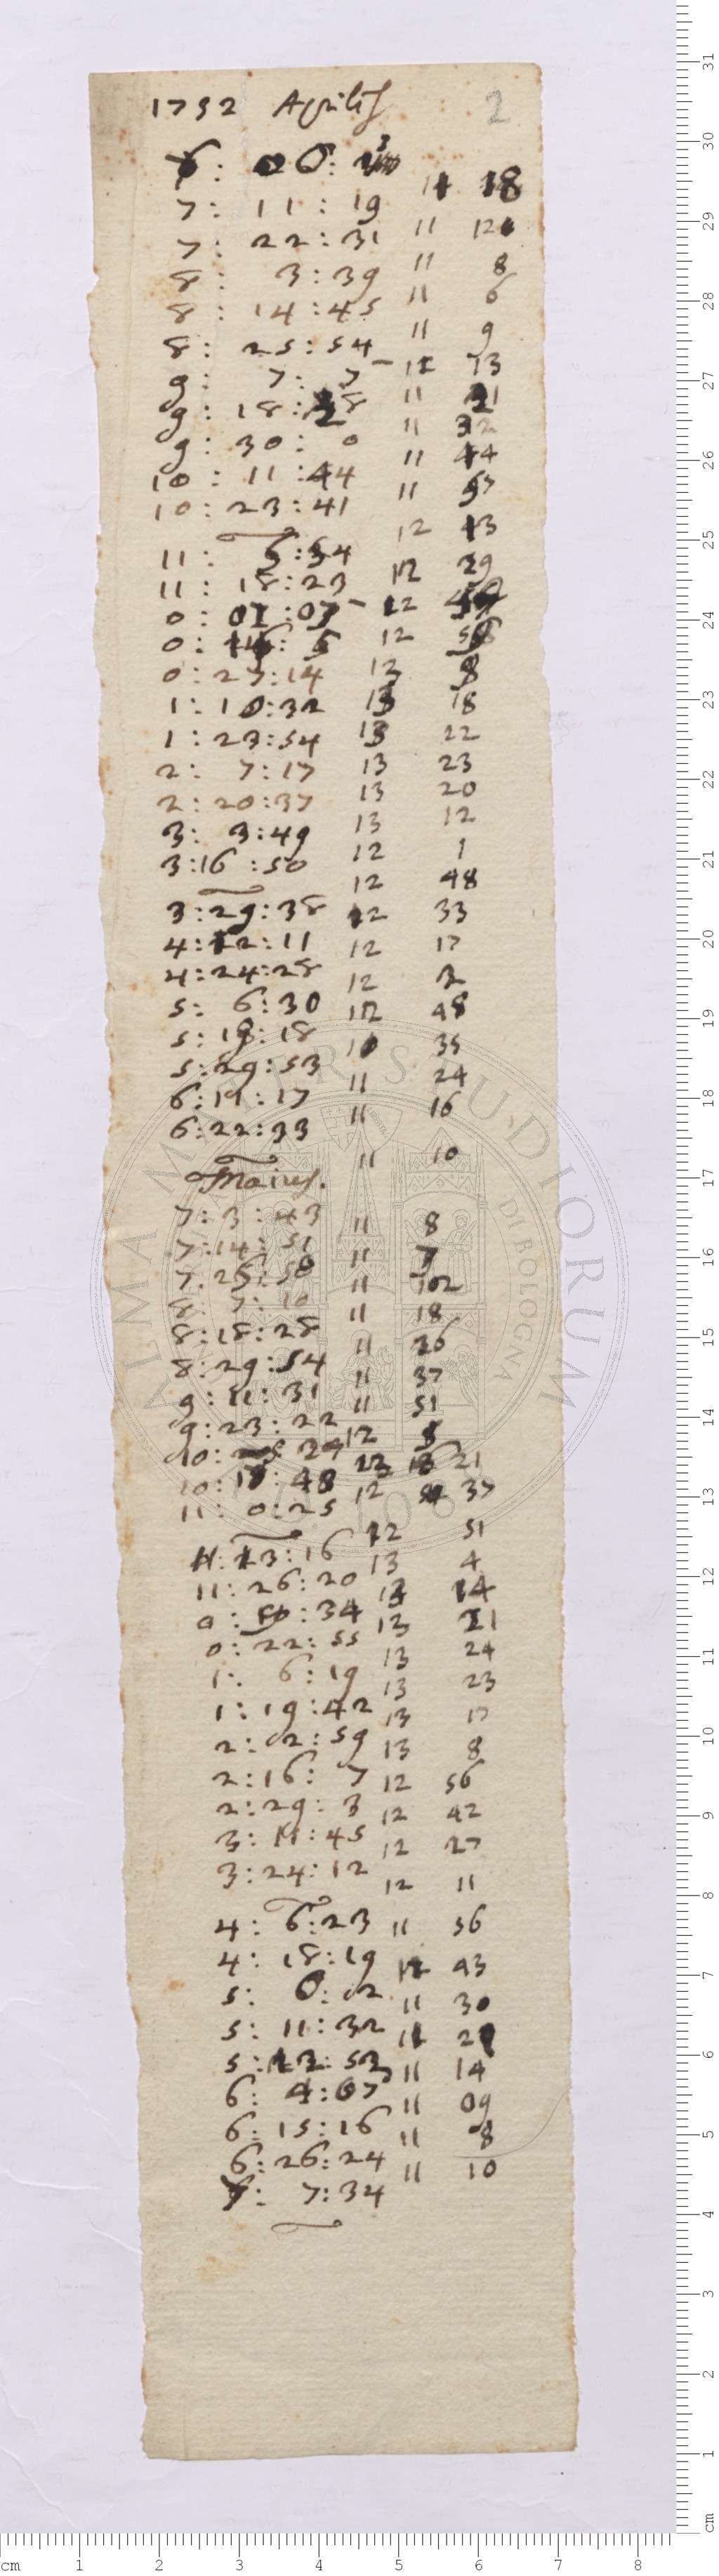 1732 Aprilis 2
7: 11: 19 11 12
7: 22: 31 11 8
8: 3: 39 11 6
8: 14: 45 11 9
8: 25: 54 13
9: 7: 7 11 21
9: 18: 28 11 32
9: 30: 0 11 44
10: 11: 44 11 57
10: 23: 41 12 13
11: 5: 54 12 29
11: 18: 23 12
0: 01: 07 12 58
0: 5 13 8
0: 27: 14 13 18
1: 10: 32 13 22
1: 23: 54 13 23
2: 7: 17 13 20
2: 20: 37 13 12
3: 3: 49 12 1
3: 16: 50 12 48
3: 29: 38 12 33
4: 12: 11 12 17
4: 24: 28 12 2
5: 6: 30 48
5: 18: 18 35
5: 29: 53 11 24
6: 11: 17 11 16
6: 22: 33 11 10
Maius.
7: 3: 43 11 8
7: 14: 51 11 7
7: 25: 58 11
8: 7: 10 11 18
8: 18: 28 11 26
8: 29: 54 11 37
9: 11: 31 11 51
9: 23: 22 12 8
10: 29 21
10: 48 12 37
11: 0: 25 12 51
11: 13: 16 13 4
11: 26: 20 13 14
0: 34 13 21
0: 22: 55 13 24
1: 6: 19 13 23
1: 19: 42 13 17
2: 02: 59 13 8
2: 16: 7 12 56
2: 29: 3 12 42
3: 11: 45 12 27
3: 24: 12 12 11
4: 6: 23 11 56
4: 18: 19 43
5: 0: 02 11 30
5: 11: 32 11 21
5: 53 11 14
6: 4: 07 11 09
6: 15: 16 11 8
6: 26: 24 11 10
7: 7: 34
ALMA MATER STUDIORUM
DI BOLOGNA